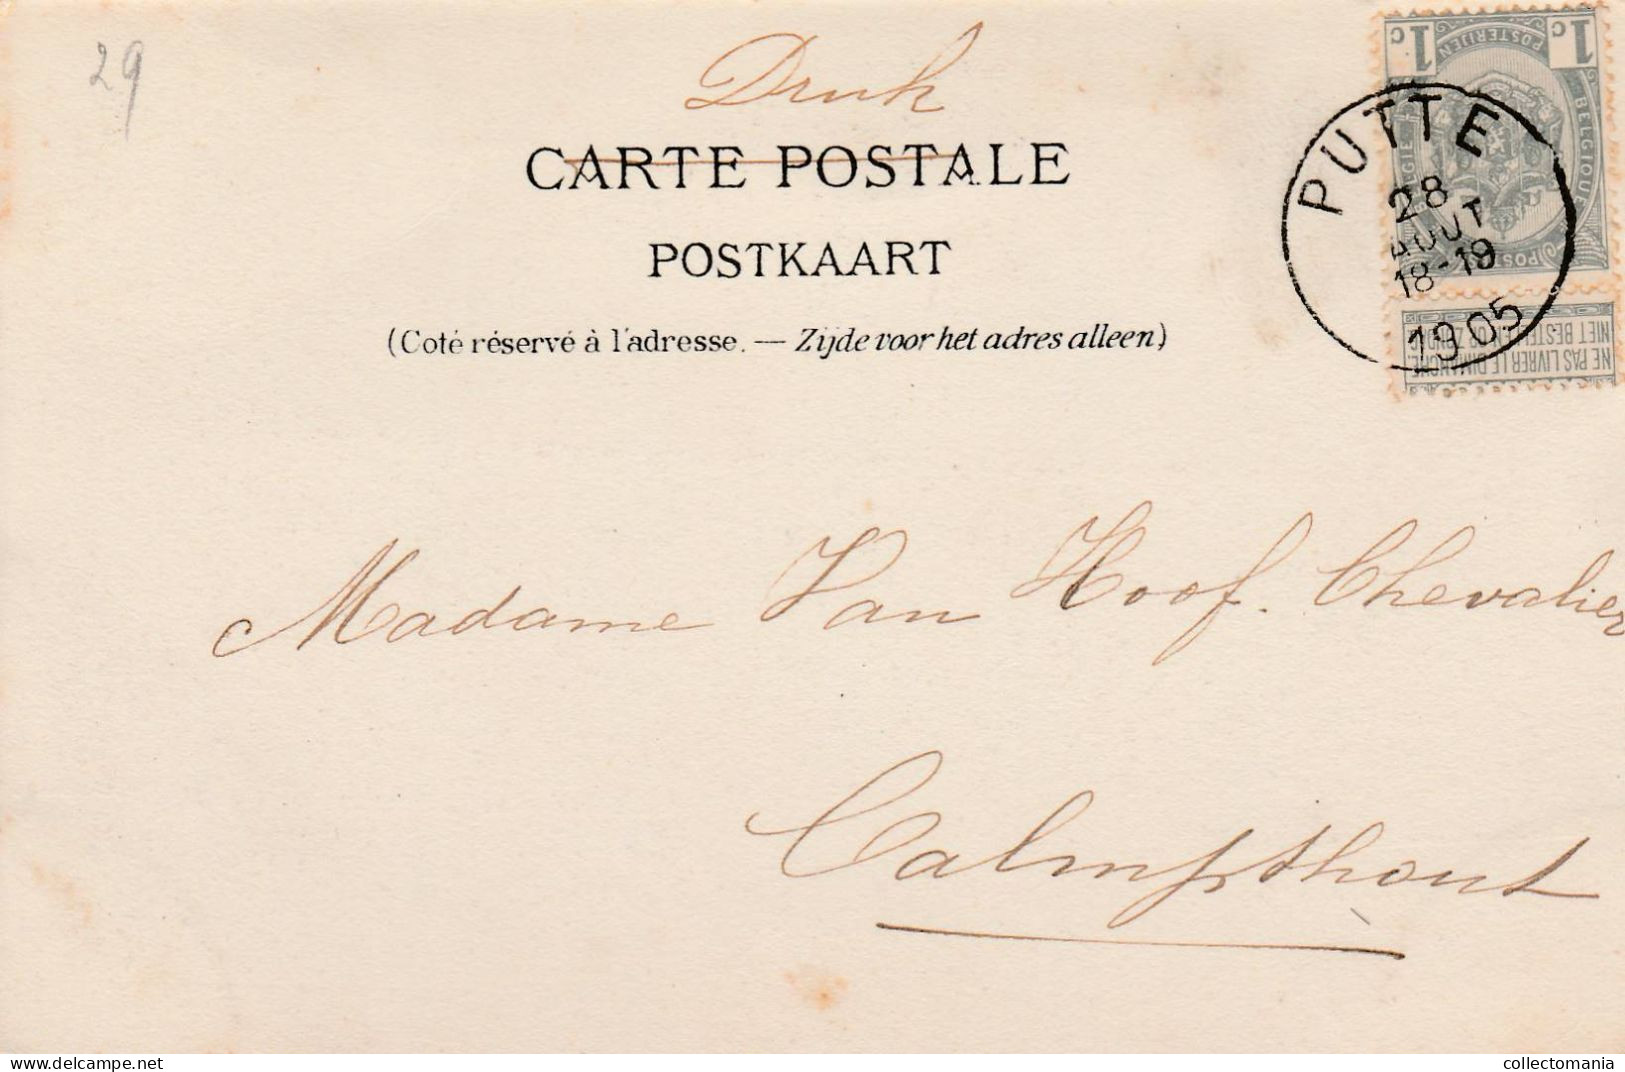 29
Druk
CARTE POSTALE
POSTKAART
(Coté réservé à l'adresse. — Zijde voor het adres alleen)
1c 1c
POSTERIJEN
BELGIQUE
PUTTE
28
AOUT
18-19
1905
NE PAS LIVRER LE DIMANCHE
NIET BESTELLEN OP ZONDAG
Madame Van Hoof. Chevalier
Calmpthout
collectomania